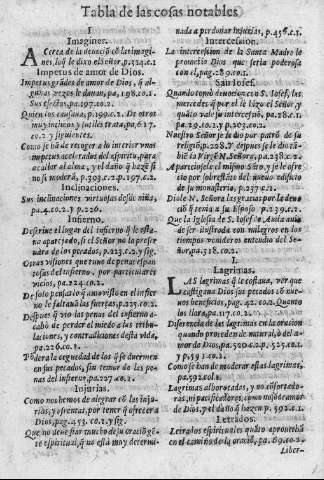 Tabla de las cosas notables
I
Imagines.
ACerca de la deuociõ cõ las imagi
nes, lo q̃ le dixo el Señor, p.324.c.1
Impetus de amor de Dios.
Impetus grãdes de amor de Dios, q̃ al-
gunas vezes le dauan, pa, 198.co.2.
Sus efectos, pa.197.co.2.
Quien los causaua, p.199.co.2. De otros
muy
co.2 y siguientes.
Como se hã de recoger a lo interior unos
impetus acelerados del espiritu, para
acudir al alma, y el daño q̃ haze si
no se moderã, p.303.co.2.
Inclinaciones.
Sus inclinaciones virtuosas desde niña,
pa.4.co.2. y p.226.
Infierno.
Descriue el lugar del infierno q̃ le esta-
ua aparejado, si el Señor no la preser
uàra de los pecados, p.223.c.2.y sig.
Otras visiones que tuuo de penas espan
tosas del infierno, por particulares
vicios, pa.224.co.2.
De solo pensar lo q̃ auia visto en el infier
no le faltaua las fuerças, p.225.co.2.
Despues q̃ vio las penas del infierno a-
cabò de perder el miedo a las tribu-
laciones, y contradiciones desta vida,
pa.226.co.1.
Põdera la ceguedad de los q̃ se duermen
en sus pecados, sin temer de las pe-
nas del infierno, pa.227.co.1.
Injurias.
Como nos hemos de alegrar cõ las inju-
rias, y afrentas, por tener q̃ ofrecer a
Dios, pag.453.co.2.y sig.
Que no deue fiar mucho de su oraciõ gẽ-
te espiritual, q̃ no està muy determi-
nada a perdonar injurias, p.456.c.1.
Intercession.
La intercession de la Santa Madre le
prometio Dios que seria poderosa
con el, pag.289.co.1.
San Iosef.
Quando tomò deuocion cõ S. Iosef, las
mercedes q̃ por el le hizo el Señor, y
quãto vale su intercessiõ, pa.28.c.1.
pa.29.co.2. y p.203.co.2.
Nuestro Señor se le dio por patrõ de su
religiõ, p.228. Y despues se le dio tã-
biẽ la Virgẽ N. Señora, pa.238.c.2.
Apareciosele el mismo Señor, y le ofre
cio por
de su monasterio, p.237.c.1.
Diole N. Señora las gracias por la deuo
ciõ q̃ tenia a su Esposo p.239.c.2.
Que la Iglesia de S. Iosef de Auila auia
de ser ilustrada con milagros en los
tiempos venideros entendio del Se-
ñor, pa.318.co.2.
L
Lagrimas.
LAS lagrimas q̃ le costaua, ver que
castigaua Dios sus pecados cõ nue-
uos beneficios, pag. 42.co.2. Quanto
los llora, pa.117.co.1.
Diferencia de las lagrimas en la oracion
quando proceden de natural, o del a-
mor de Dios, pa.520.c.2.
y p.591.co.2.
Como se han de moderar estas lagrimas,
pa.592.co.1.
Lagrimas alborotadas, y no
ras, ni pacificadores, como no
de Dios, y el daño q̃ hazen p.592.c.1.
Letrados.
Letrados espirituales quãto aprouechã
en el camino de la oraciõ, pa.69.co.2.
Liber-